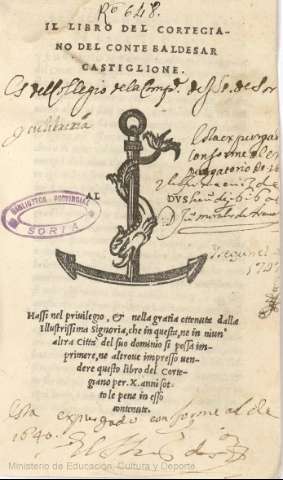 Rº 648.
IL LIBRO DEL CORTEGIA-
NO DEL CONTE BALDESAR
CASTIGLIONE.
Es del Collegio de la Comp.ª de
AL DVS
BIBLIOTECA PROVINCIAL
SORIA
Esta expurgado
conforme al ex
purgatorio de
Hassi nel priuilegio, & nella gratia ottenuta dalla
Illustrissima Signoria, che in questa, ne in niun'
altra Citta del suo dominio si possa im-
primere, ne altroue impresso uen-
dere questo libro del Corte-
giano per .X. anni sot-
to le pene in esso
contenute.
Esta expurgado conforme al de
1640.
Ministerio de Educación, Cultura y Deporte